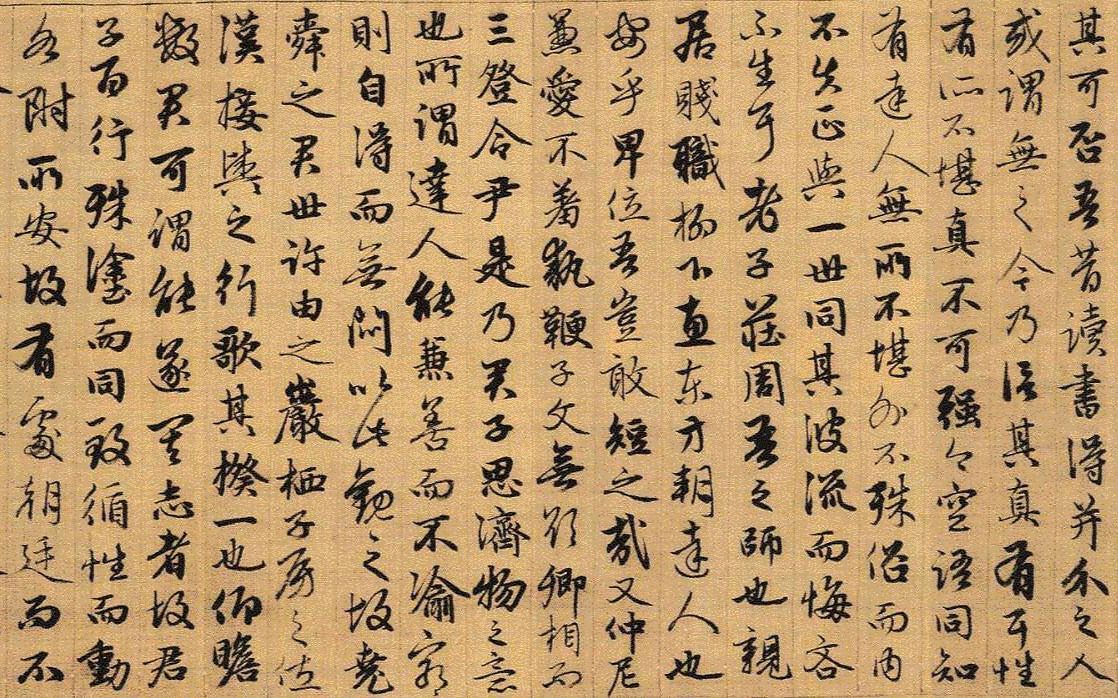 其可否吾昔讀書得并介之人
或謂無之今乃信其真有耳性
有所不堪真不可强今空語同知
有達人無所不堪外不殊俗而內
不失正與一世同其波流而悔吝
不生耳老子莊周吾之師也親
居賤職柳下惠東方朔達人也
安乎卑位吾豈敢短之哉又仲尼
兼愛不羞執鞭子文無欲卿相而
三登令尹是乃君子思濟物之意
也所謂達人能兼善而不渝窮
則自得而無悶以此觀之故堯
舜之君世許由之巖栖子房之佐
漢接輿之行歌其揆一也仰瞻
數君可謂能遂其志者故君
子百行殊塗而同致循性而動
各附所安故有處朝廷而不